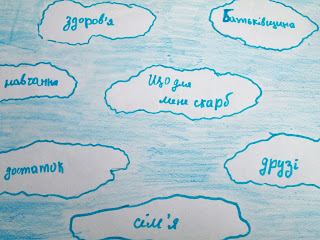 здоров'я
Батьківщина
навчання
Що для
мене скарб
достаток
друзі
сім'я